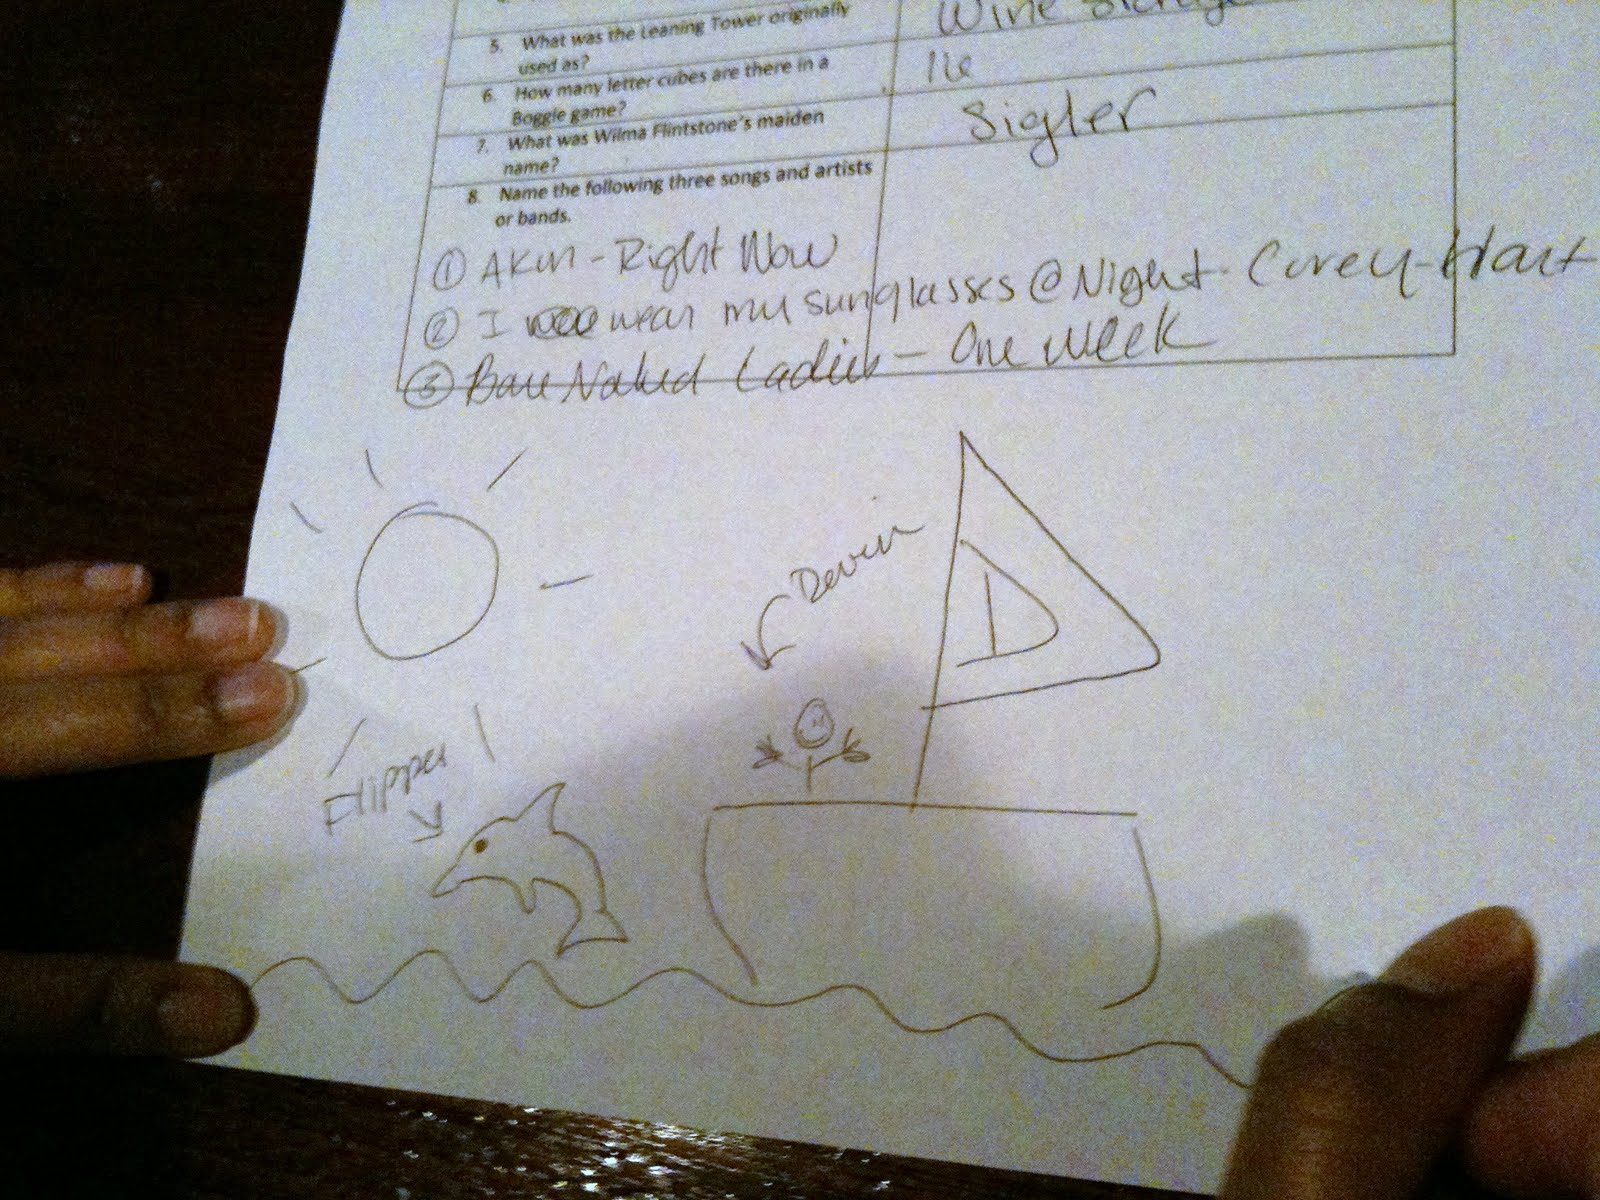 5. What was the Leaning Tower originally
used as?
Wine Storage
6. How many letter cubes are there in a
Boggle game?
16
7. What was Wilma Flintstone's maiden
name?
Sigler
8. Name the following three songs and artists
or bands.
① Akon - Right Now
② I wear my sunglasses @ Night - Corey-Hart
③ Bare Naked Ladies - One Week
Devin
D
Flipper